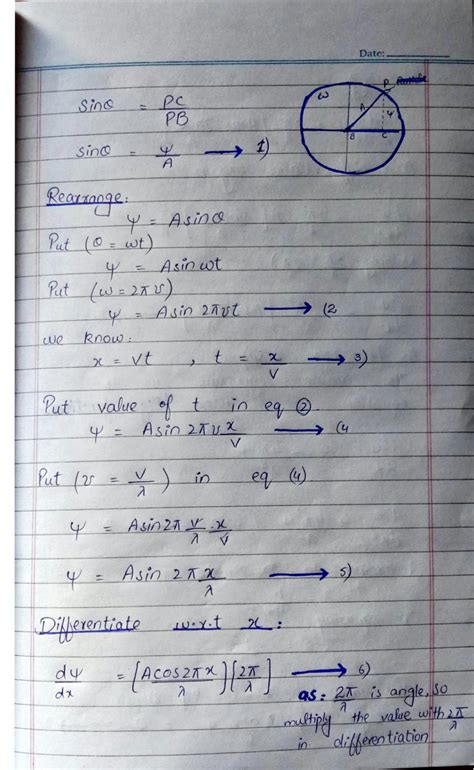 Date:
Sinθ = PC/PB
ω P A ψ B C
Sinθ = ψ/A ⟶ 1)
Rearrange:
ψ = A sinθ
Put (θ = ωt)
ψ = A sin ωt
Put (ω = 2πν)
ψ = A sin 2πνt ⟶ (2
we know:
x = vt , t = x/v ⟶ 3)
Put value of t in eq ②.
ψ = A sin 2πν x/v ⟶ (4
Put (ν = v/λ) in eq (4).
ψ = A sin 2π v/λ · x/v
ψ = A sin 2π x/λ ⟶ 5)
Differentiate w.r.t x :
dψ/dx = [A cos 2π x/λ] [2π/λ] ⟶ 6)
as: 2π/λ is angle, so
multiply the value with 2π/λ
in differentiation